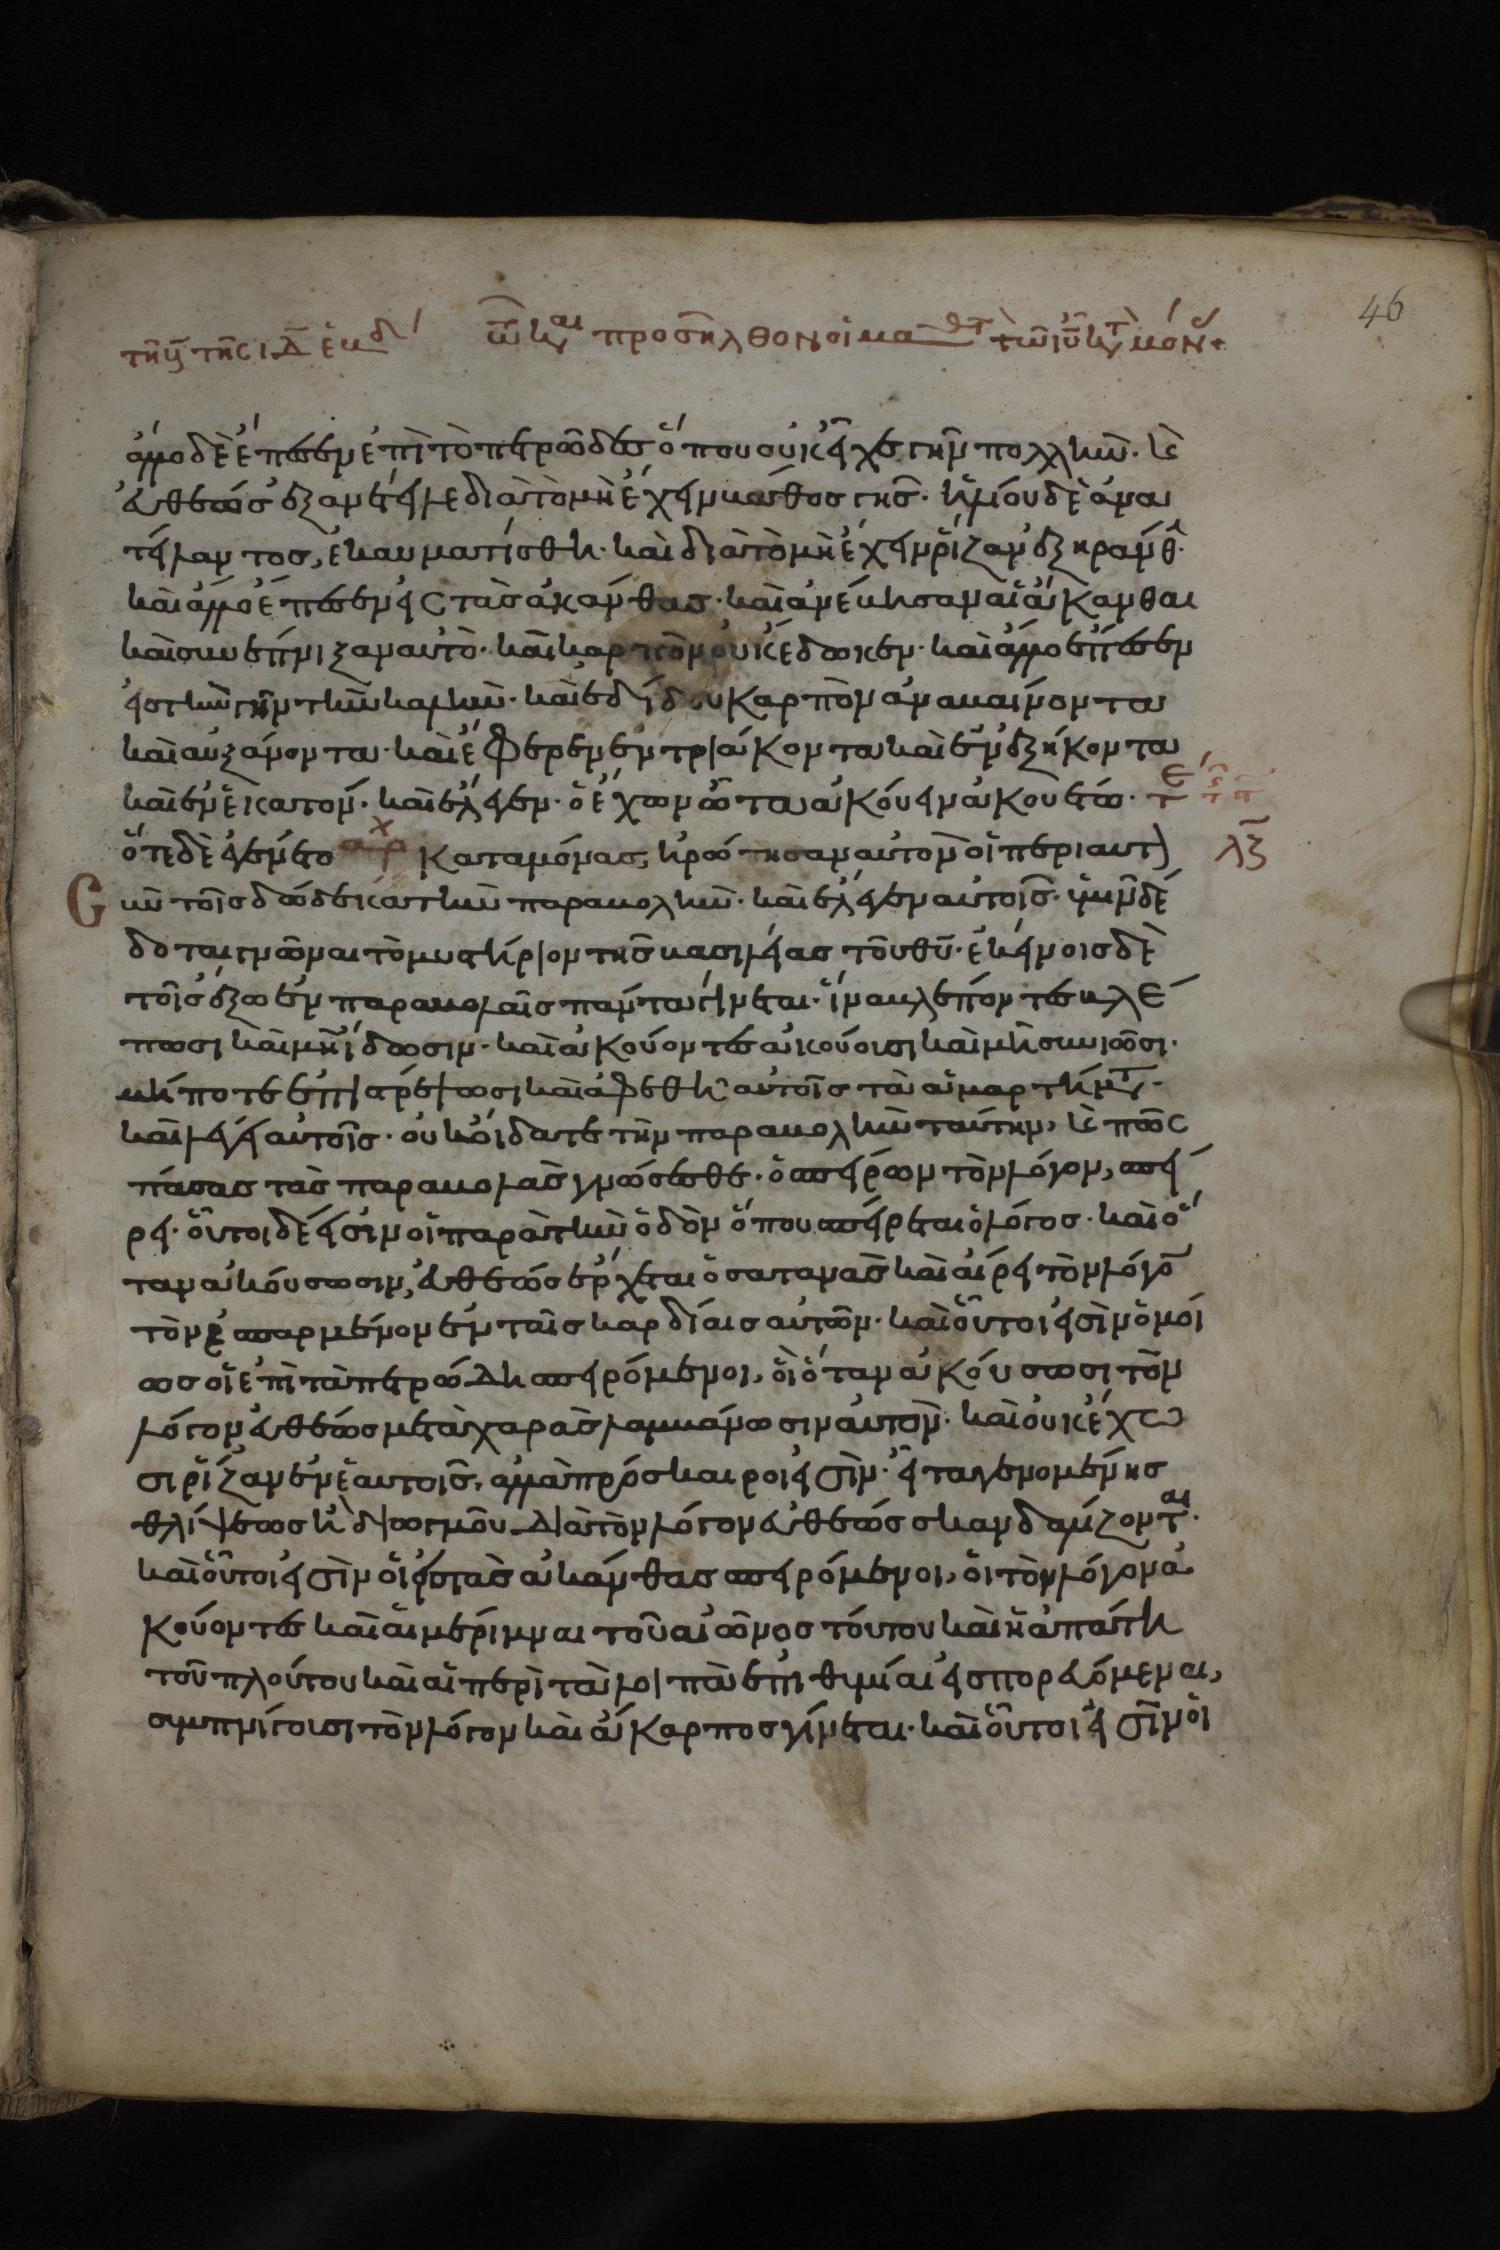 46
τῆ ϛ τῆς ιδ ἑβδ τῶ κ αι προσῆλθον οἱ μαθτ τῶ ιυ κτ μόν
ἄλλο δὲ ἔπεσεν ἐπὶ τὸ πετρῶδες ὅπου οὐκ εἶχε γῆν πολλὴν. κ
εὐθέως ἐξανέτειλε διὰ τὸ μὴ ἔχειν βάθος γῆς. ἡλίου δὲ ἀνα
τείλαντος, ἐκαυματίσθη. καὶ διὰ τὸ μὴ ἔχειν ῥίζαν ἐξηράνθ
καὶ ἄλλο ἔπεσεν εἰς τὰς ἀκάνθας. καὶ ἀνέβησαν αἱ ἄκανθαι
καὶ συνέπνιξαν αὐτὸ. καὶ καρπὸν οὐκ ἔδωκεν. καὶ ἄλλο ἔπεσεν
εἰς τὴν γῆν τὴν καλὴν. καὶ ἐδίδου καρπὸν ἀναβαίνοντα
καὶ αὐξάνοντα. καὶ ἔφερεν ἓν τριάκοντα καὶ ἓν ἑξήκοντα
καὶ ἓν ἑκατόν. καὶ ἔλεγεν. ὁ ἔχων ὦτα ἀκούειν ἀκουέτω. τε
ὅτε δὲ ἐγένετο αρχ καταμόνας, ἠρώτησαν αὐτὸν οἱ περι αυτ λϛ
Σὺν τοῖς δώδεκα τὴν παραβολὴν. καὶ ἔλεγεν αὐτοῖς. ὑμῖν δέ
δοται γνῶναι τὸ μυστήριον τῆς βασιλείας τοῦ θυ. ἐκείνοις δὲ
τοῖς ἔξω ἐν παραβολαῖς πάντα γίνεται. ἵνα βλέποντες βλέ
πωσι καὶ μὴ ἴδωσιν. καὶ ἀκούοντες ἀκούουσι καὶ μὴ συνιῶσι.
μή ποτε ἐπιστρέψωσι καὶ ἀφεθῆ αὐτοῖς τὰ ἁμαρτήματ.
καὶ λέγει αὐτοῖς. οὐκ οἴδατε τὴν παραβολὴν ταύτην, κ πῶς
πάσας τὰς παραβολὰς γνώσεσθε. ὁ σπείρων τὸν λόγον, σπεί
ρει. οὗτοι δέ εἰσιν οἱ παρὰ τὴν ὁδὸν ὅπου σπείρεται ὁ λόγος. καὶ ὅ
ταν ἀκούσωσιν, εὐθέως ἔρχεται ὁ σατανᾶς καὶ αἴρει τὸν λόγο
τὸν ἐσπαρμένον ἐν ταῖς καρδίαις αὐτῶν. καὶ οὗτοι εἰσὶν ὁμοί
ως οἱ ἐπὶ τὰ πετρώδη σπειρόμενοι, οἳ ὅταν ἀκούσωσι τὸν
λόγον εὐθέως μετὰ χαρᾶς λαμβάνωσιν αὐτὸν. καὶ οὐκ ἔχω
σι ῥίζαν ἐν ἑαυτοῖς, ἀλλὰ πρόσκαιροι εἰσὶν. εἶτα γενομένης
θλίψεως ἢ διωγμοῦ διὰ τὸν λόγον εὐθέως σκανδαλίζοντ αι.
καὶ οὗτοι εἰσὶν οἱ εἰς τὰς ἀκάνθας σπειρόμενοι, οἱ τὸν λόγον ἀ
κούοντες καὶ αἱ μέριμναι τοῦ αἰῶνος τούτου καὶ ἡ ἀπάτη
τοῦ πλούτου καὶ αἱ περὶ τὰ λοιπὰ ἐπιθυμίαι εἰσπορευόμεναι,
συμπνίγουσι τὸν λόγον καὶ ἄκαρπος γίνεται. καὶ οὗτοι εἰσὶν οἱ